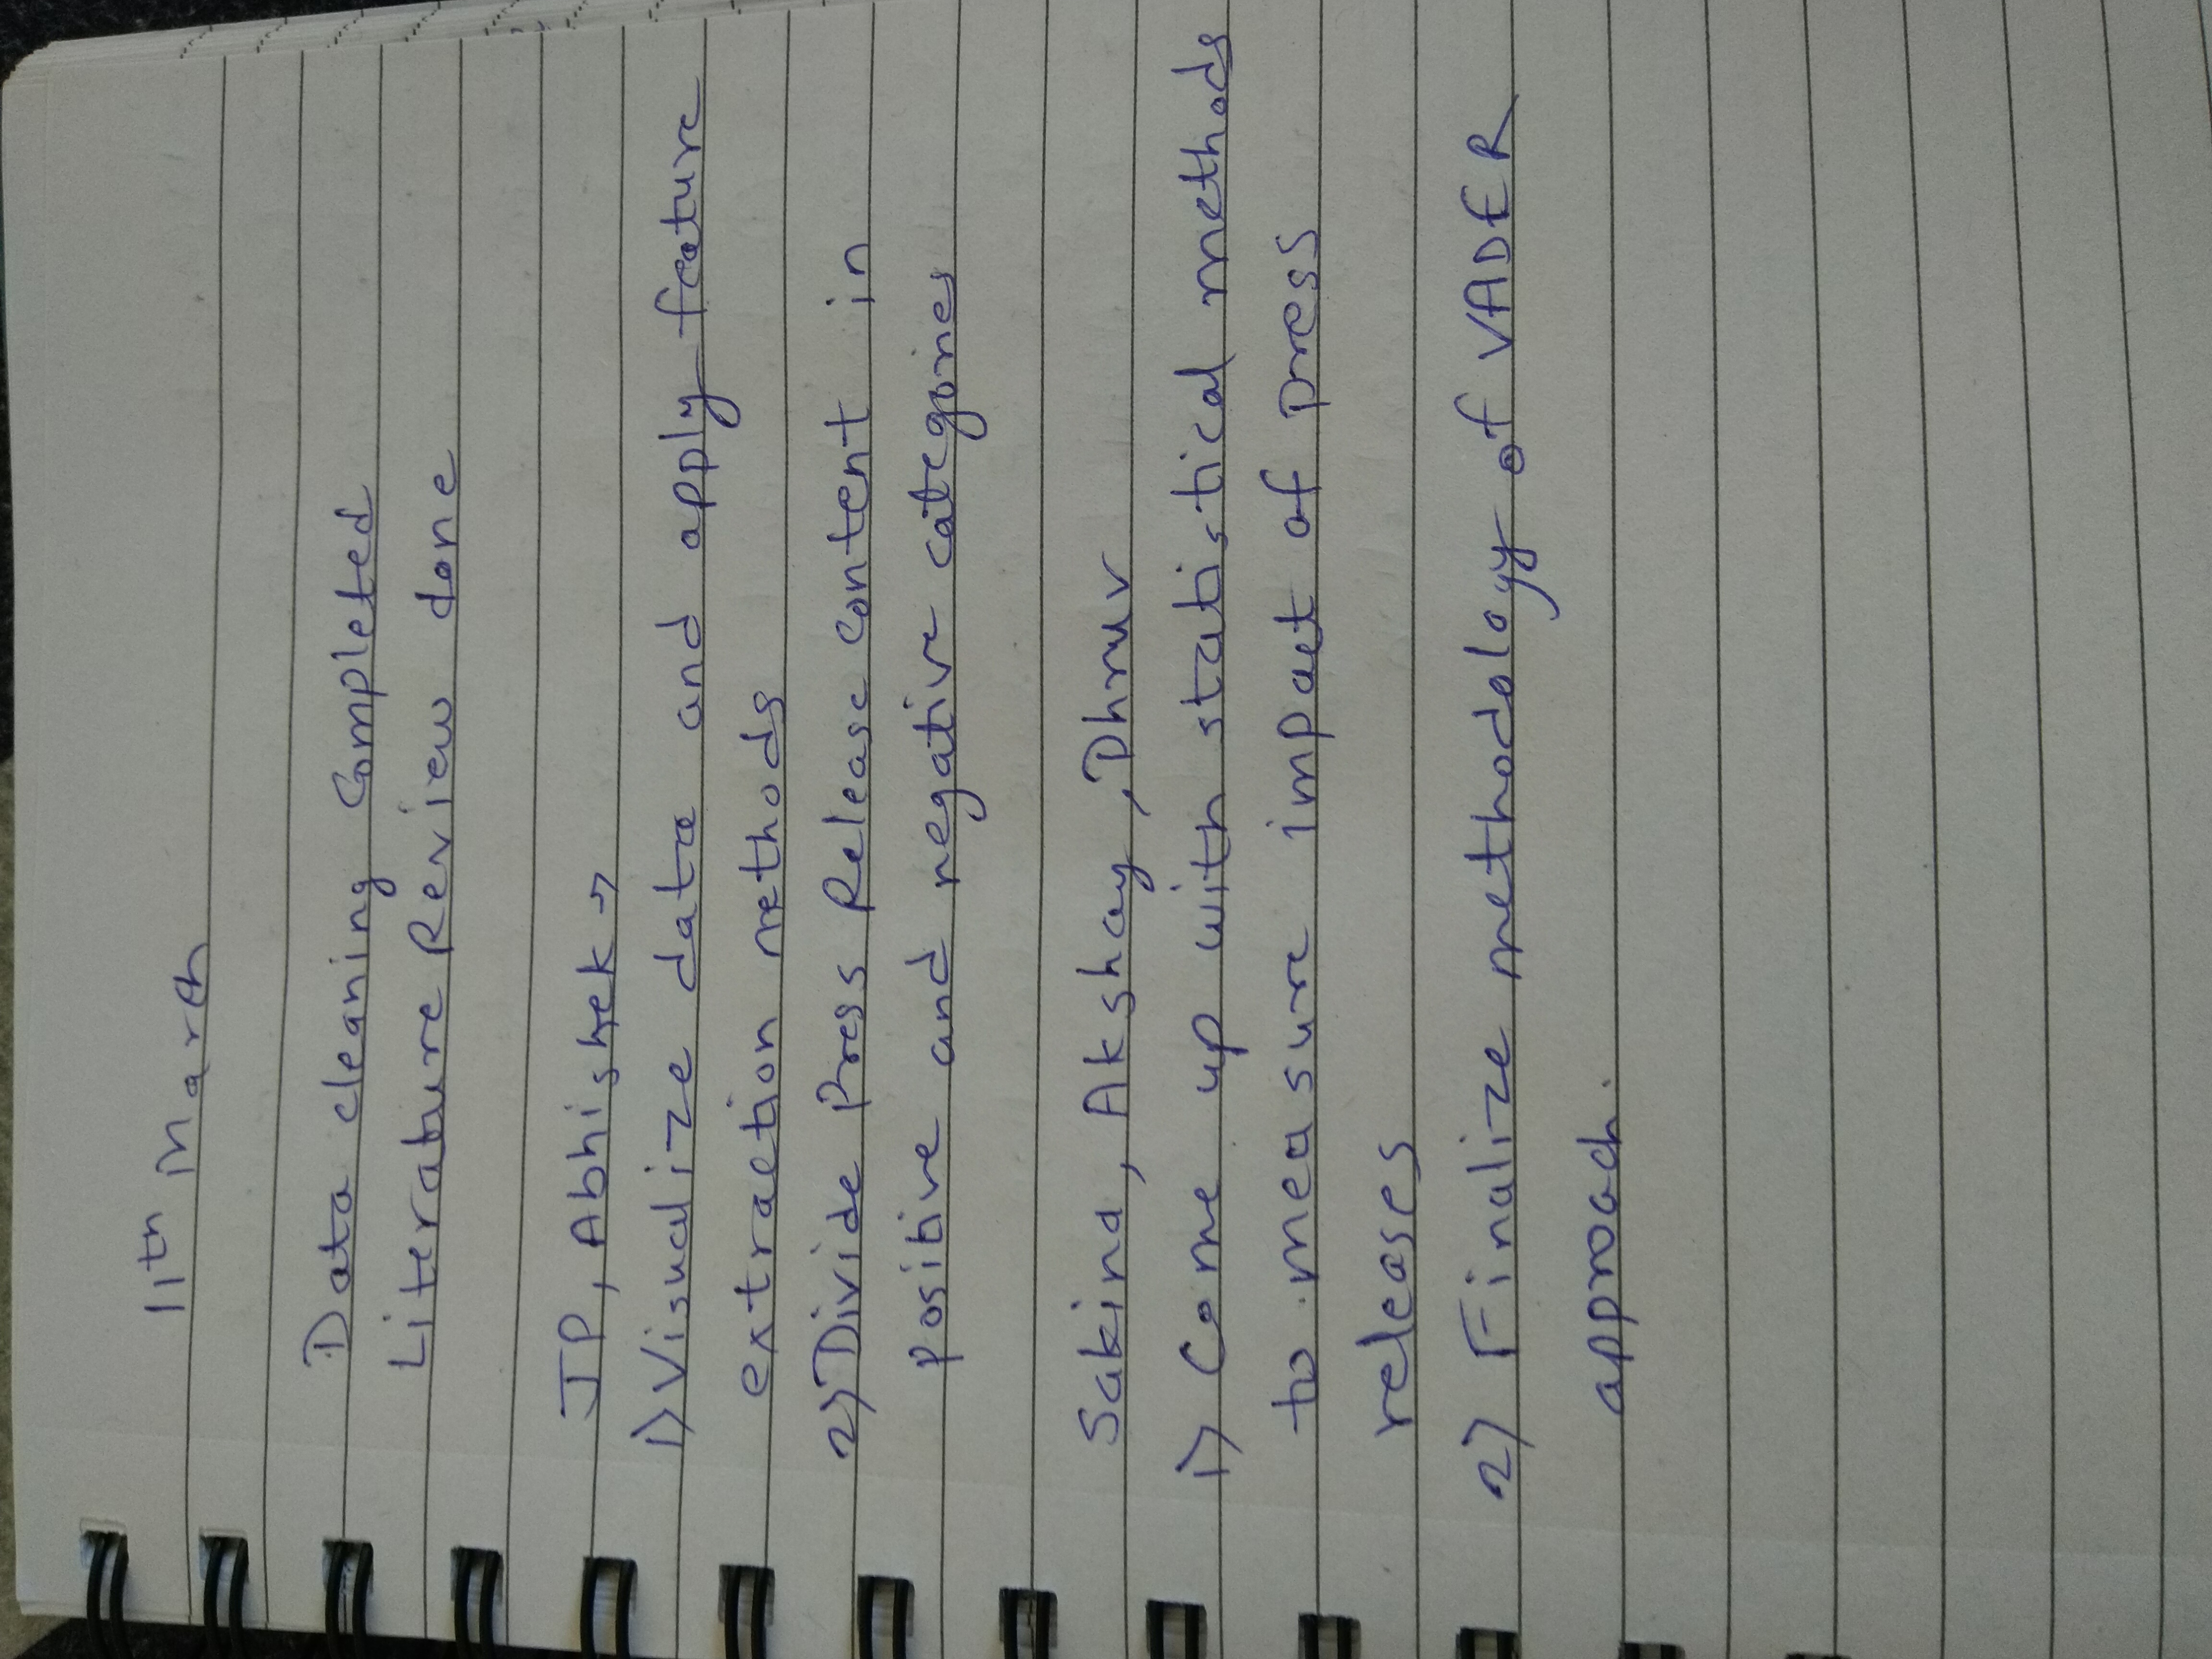 11th March
Data cleaning Completed
Literature Review done
JP, Abhishek →
1) Visualize data and apply feature
extraction methods
2) Divide Press Release content in
positive and negative categories
Sakina, Akshay, Dhruv
1) Come up with statistical methods
to measure impact of press
releases
2) Finalize methodology of VADER
approach.